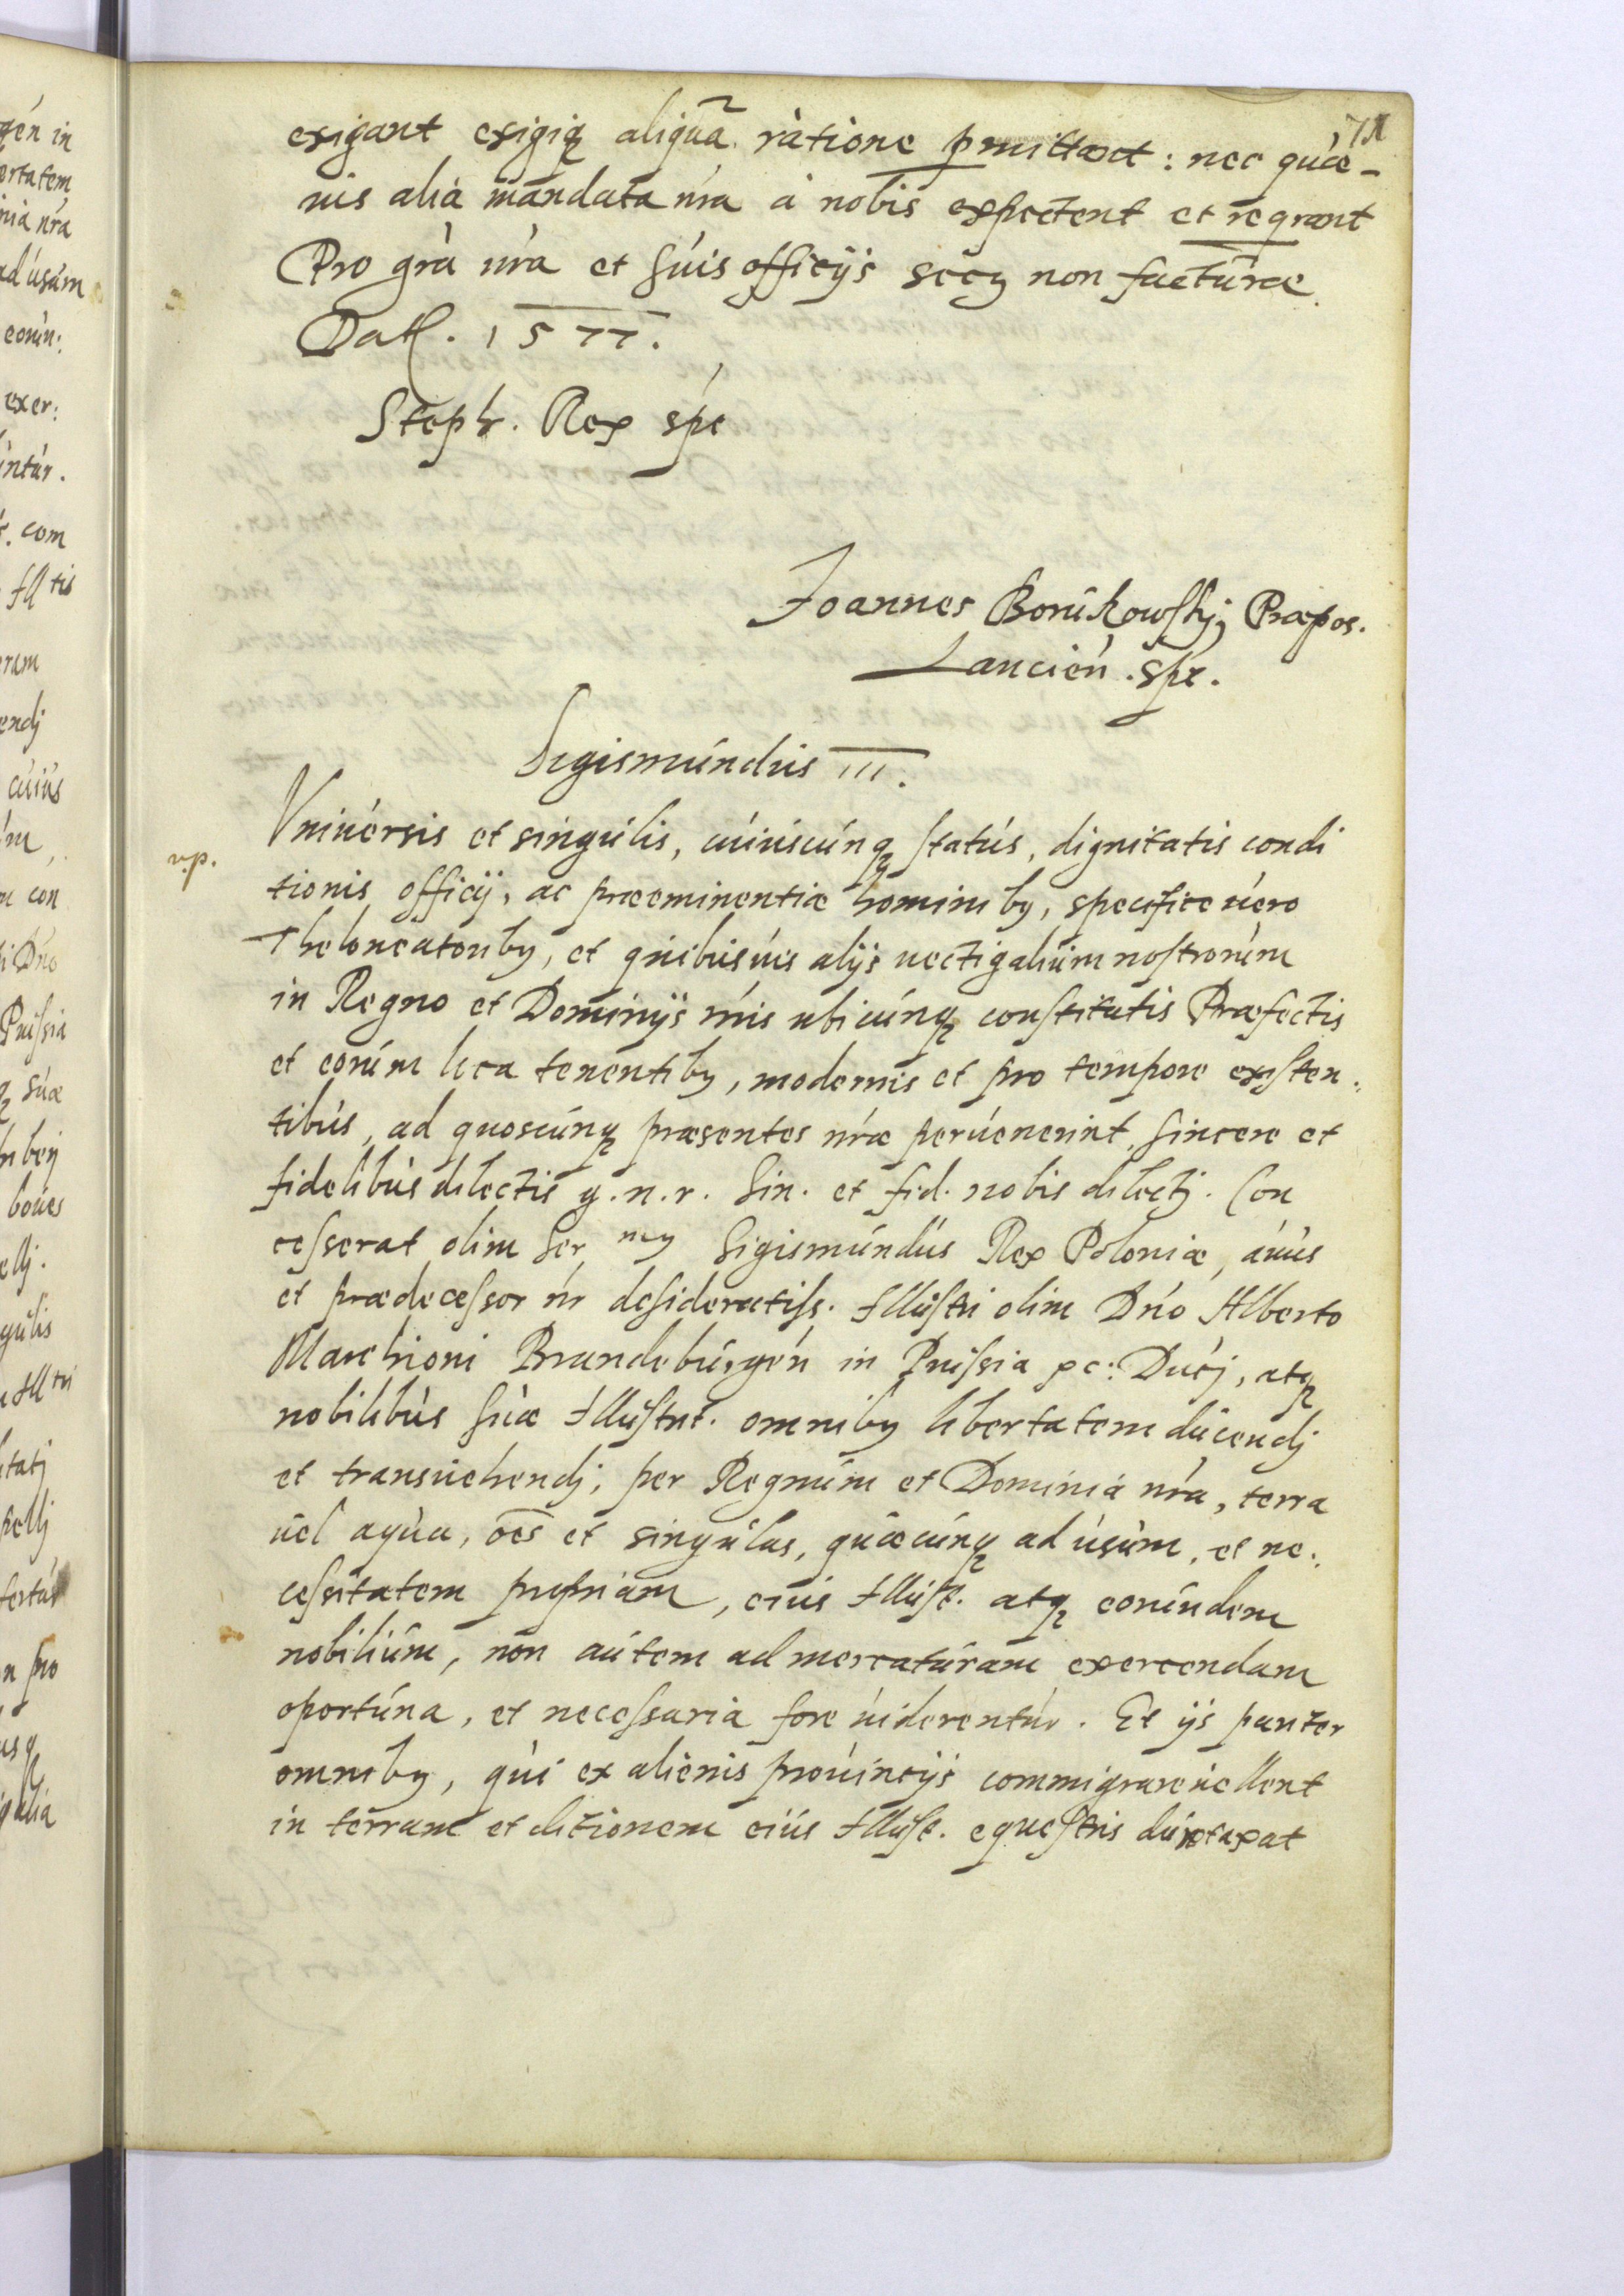 71
exigant exigiq aliquã ratione pmittant: nec quae-
uis alia mandata nra à nobis expectent et reqrant
Pro gra nra et suis officijs secq non facturae.
Dat. 1577.
Steph. Rex spt
Joannes Borukowskj Praepos.
Lancien. spt.
Sigismundus III.
Vniuersis et singulis, cuiuscunq status, dignitatis condi
tionis officij, ac praeminentiae hominibq, specifice uero
Theloneatoribq, et quibusuis alijs uectigalium nostrorum
in Regno et Dominijs nris ubicunq constitutis Praefectis
et eorum loca tenentibq, modernis et pro tempore existen:
tibus, ad quoscunq praesentes nrae peruenerint, sincere et
fidelibus dilectis g. n. r. Sin. et fid. nobis dilectj. Con
cesserat olim Ser mq Sigismundus Rex Poloniae, auus
et praedecessor nr desideratiss. Illustri olim Dno Alberto
Marchioni Brandeburgen in Prussia xc: Ducj, atq
nobilibus suae Illustrit. omnibq libertatem ducendj
et transuehendj, per Regnum et Dominia nra, terra
uel aqua, oes et singulas, quaecunq ad usum, et ne:
cessitatem propriam, eius Illust. atq eorundem
nobilium, non autem ad mercaturam exercendam
oportuna, et necessaria fore uiderentur. Et ijs pariter
omnibq, qui ex alienis prouincijs commigrare uellent
in terram et ditionem eius Illust. equestris duntaxat
v.p.